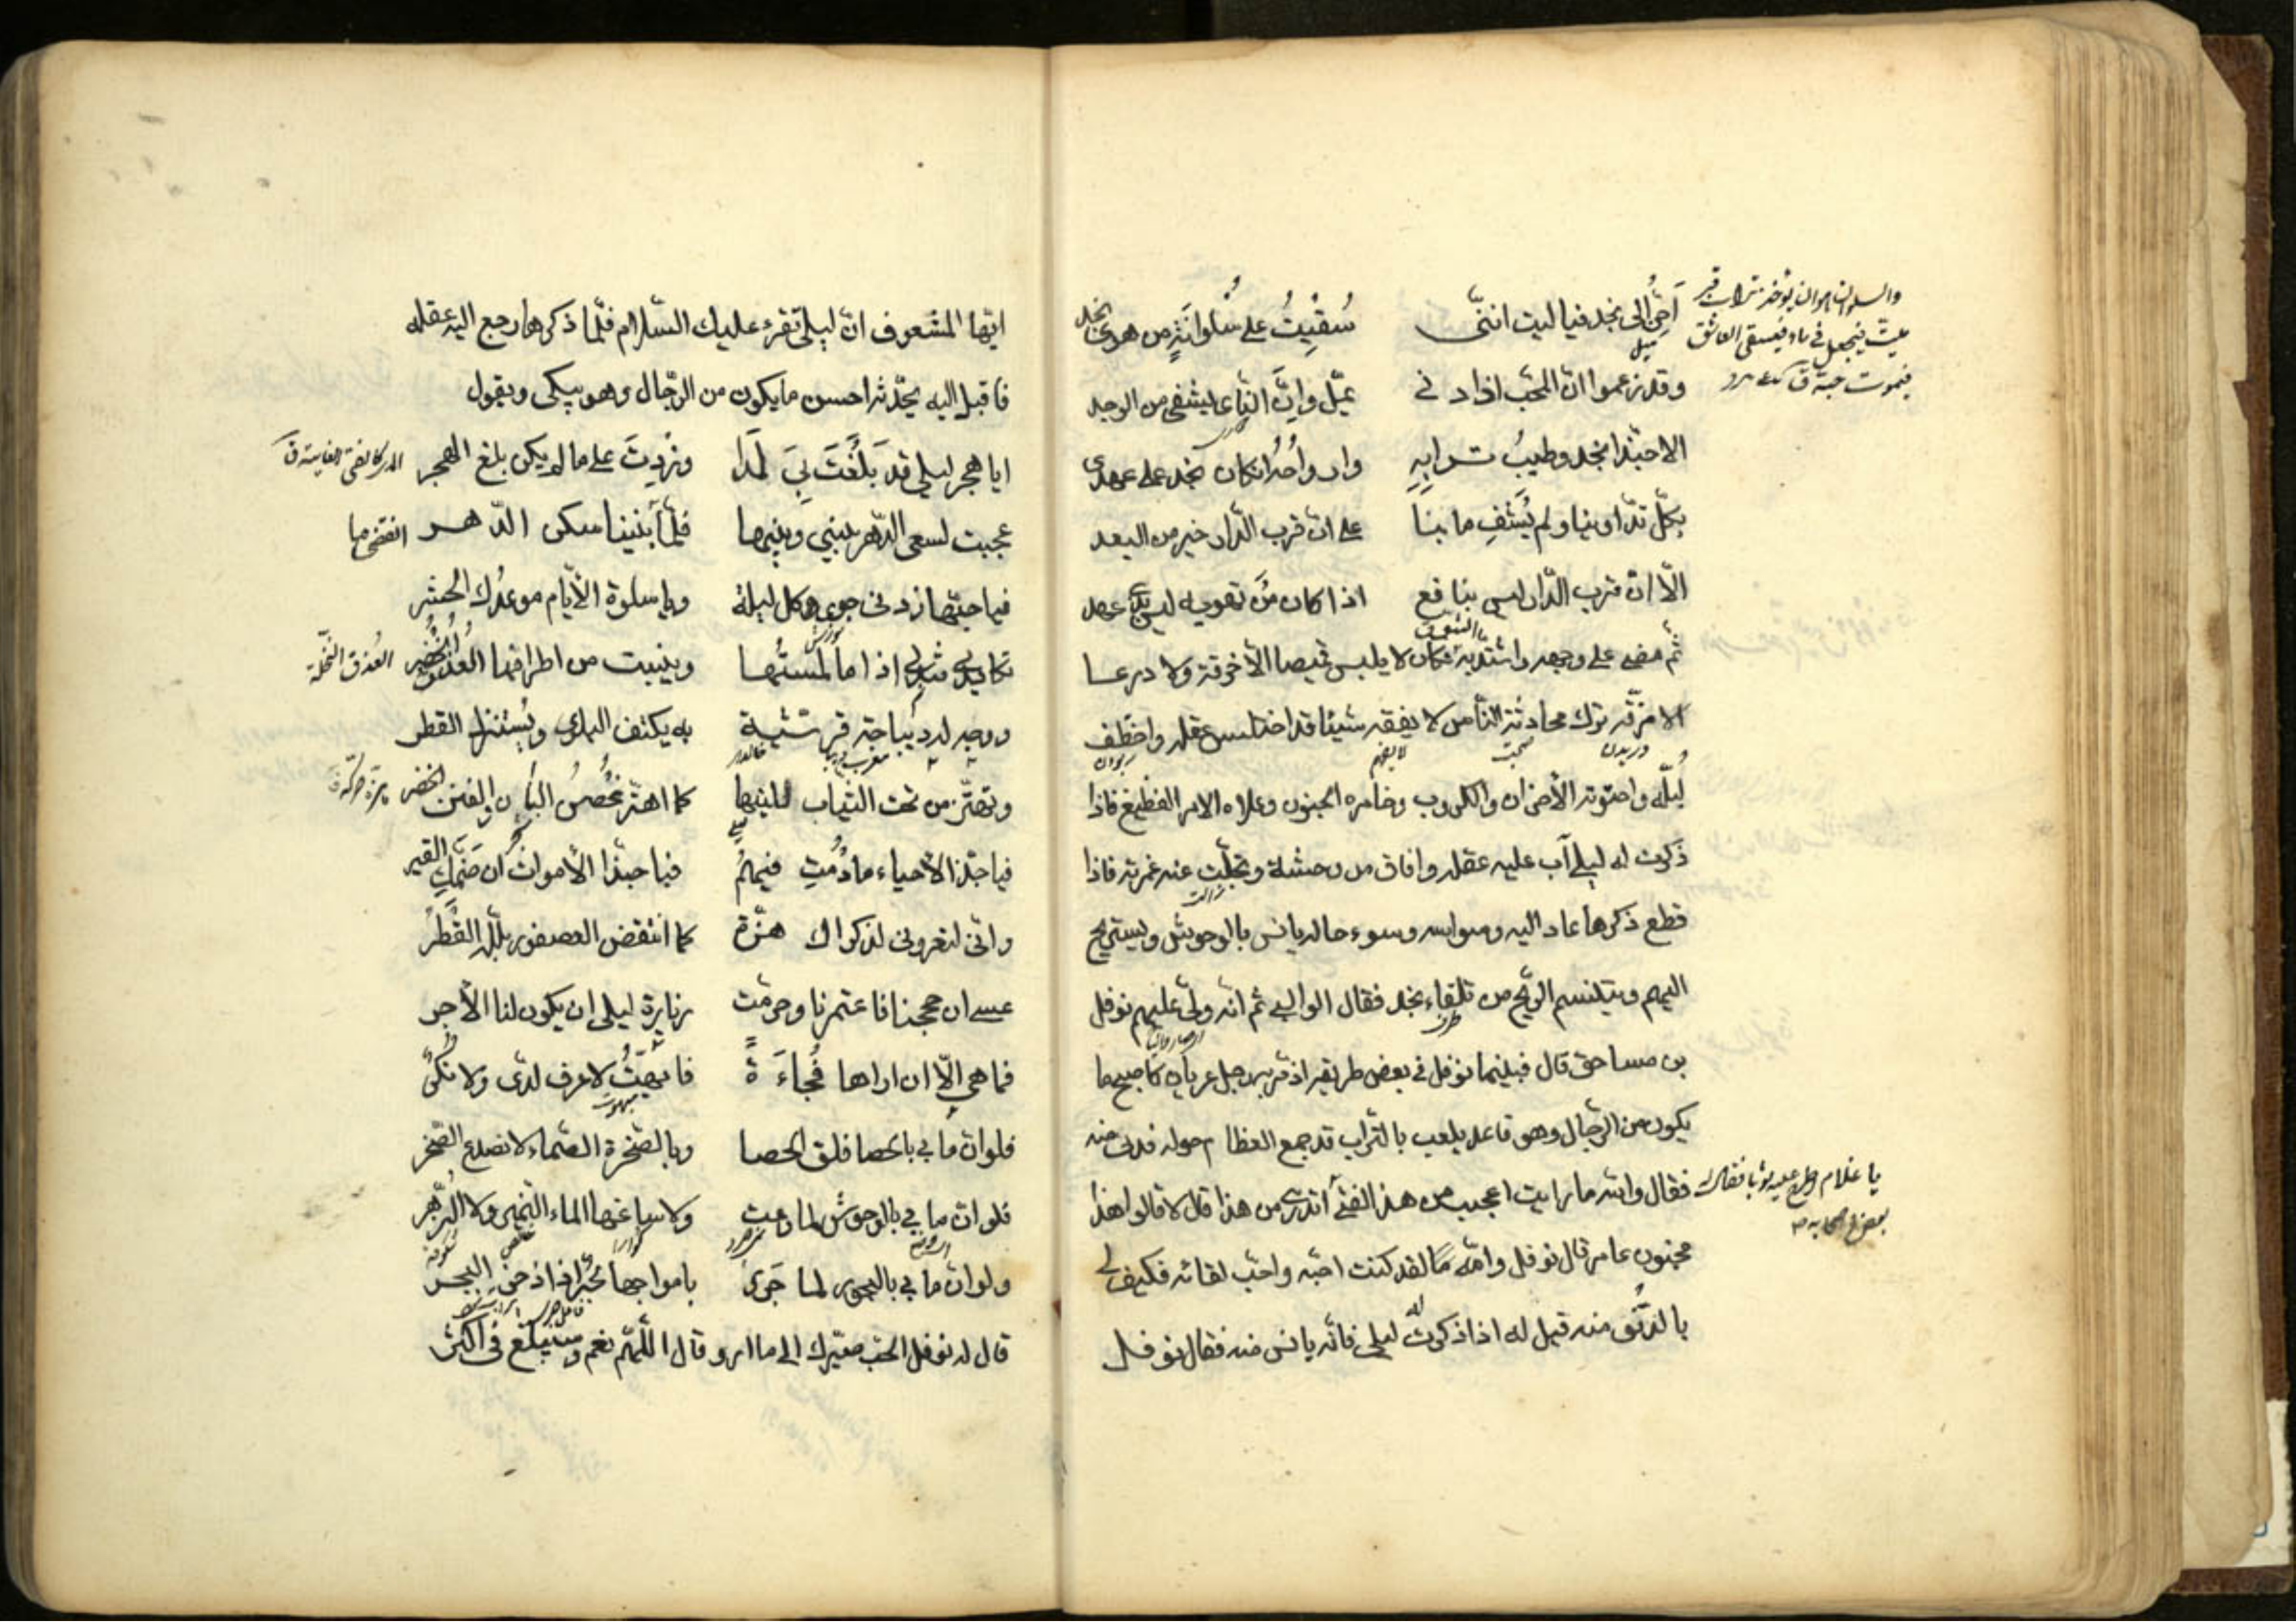 أحنّ الى نجد فيا ليت انّني سُقيتُ على سُلوانَةٍ من هوى نجد
وقد زعموا انّ المحبّ اذا دنى يملّ وانّ النّأى يشفى من الوجد
الا حبّذا نجد وطيبُ ترابِهِ وارواحُه ان كان نجد على عهدى
بكلّ تداوينا ولم يُشفِ ما بنا على انّ قرب الدّار خير من البعد
الّا انّ قرب الدّار ليس بنافع اذا كان مَن تهويه ليس بذى عهد
ثم مضى على وجهه واشتدّ به فكان لا يلبس قميصا الّا خرقه ولا درعا
الا مزّقه ترك محادثة النّاس لا يفقه شيئا قد اختلس عقله واختطف
لبّه واحتوته الأحزان والكروب وخامره الجنون وعلاه الامر الفظيع فاذا
ذكرت له ليلى آب عليه عقله وافاق من وحشته وتجلّت عنه غمرته فاذا
قطع ذكرها عاد اليه وسواسه وسوء حاله يانس بالوحوش ويستريح
اليهم ويتنسم الريح من تلقاء نجد فقال الوالبى ثم انّه ولّى عليهم نوفل
بن مساحق قال فبينما نوفل فى بعض طريقه اذ مرّ برجل عريان كاصبح ما
يكون من الرّجال وهو قاعد يلعب بالتراب قد جمع العظام حوله فدنى منه
فقال والله ما رايت اعجب من هذا الفتى أتدرى من هذا قال لا قالوا هذا
مجنون عامر قال نوفل والله لقد كنت احبّه واحبّ لقائه فكيف لى
بالدنو منه قيل له اذا ذكرت له ليلى فانّه يانس منه فقال نوفل
والسلوان هو ان يؤخذ تراب قبر
ميت فيجعل فى ماء فيسقى العاشق
فيموت حبّه ق
يا غلام اطرح عليه ثوبا فقال له
بعض اصحابه
ايّها المشعوف انّ ليلى تقرء عليك السّلام فلمّا ذكرها رجع اليه عقله
فاقبل اليه يحدّثه احسن ما يكون من الرّجال وهو يبكى ويقول
ايا هجر ليلى قد بَلَغَتَ بىَ لمَدَا وزِدتَ على ما لم يكن بلغ الهجر
عجبت لسعى الدّهر بينى وبينها فلمّا انقضى ما بيننا سكن الدّهر
فيا حبّها زدنى جوى كل ليلة ويا سلوة الأيّام موعدك الحشر
تكاد يدى تندى اذا ما لمستُها وينبت من اطرافها الورق الخُضر
ووجه له ديباجة قرشيّة به يكشف البلوى ويُستنزل القطر
وتهتزّ من تحت الثياب للينها كما اهتزّ غصنُ البان والفنن الخضر
فيا حبّذا الأحياء ما دُمتِ فيهمُ فيا حبّذا الأموات ان ضمّكِ القبر
وانّى لتعرونى لذكراك هزّة كما انتفض العصفور بلّله القَطرُ
عسى ان حججنا فاعتمرنا وحرّمت زيارة ليلى ان يكون لنا الأجر
فما هى الّا ان اراها فُجاءَةً فابهتُ لا عرف لدىّ ولا نُكْرُ
فلو انّ ما بى بالحصا فلق الحصا وبالصّخرة الصّماء لانصدع الصّخر
فلو انّ ما بى بالوحوش لما رعت ولا ساغها الماء النّمير ولا الزّهر
ولو انّ ما بى بالبحور لما جَرىَ بامواجها بحرٌ اذا زخر البحر
قال له نوفل الحبّ صيّرك الى ما ارى وقال اللّهمّ نعم وسيبلغ فى اكثر